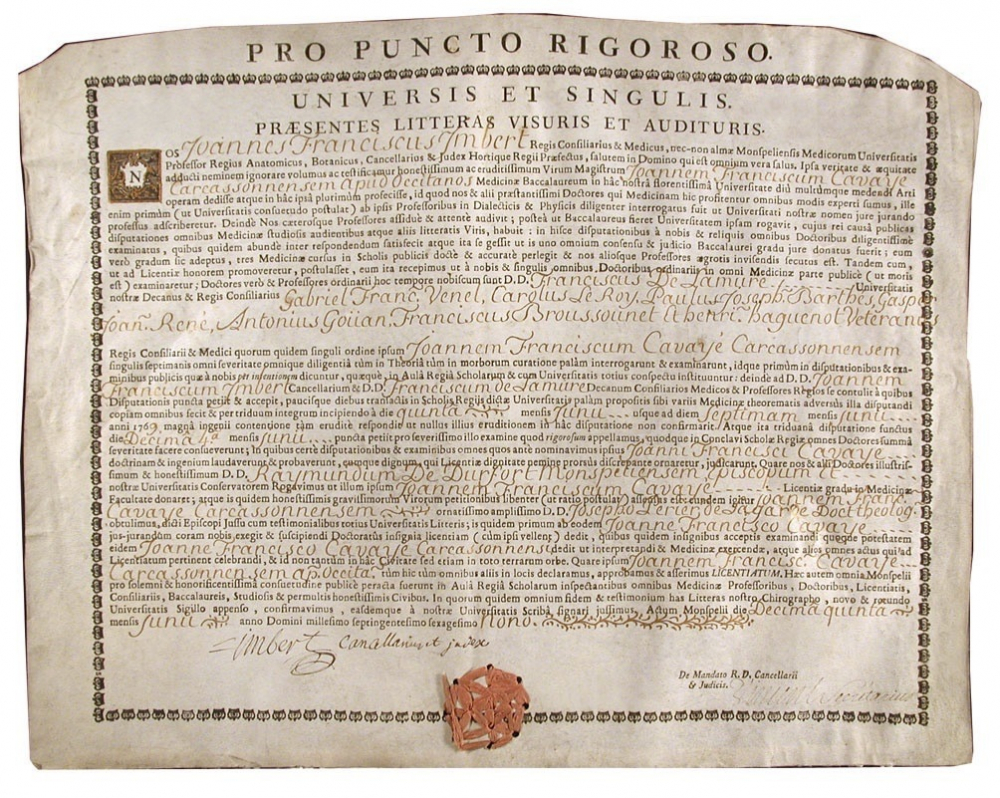 PRO PUNCTO RIGOROSO.
UNIVERSIS ET SINGULIS.
PRÆSENTES LITTERAS VISURIS ET AUDITURIS.
NOS Joannes Franciscus Imbert Regis Consiliarius & Medicus, nec-non almæ Monspeliensis Medicorum Universitatis
Professor Regius Anatomicus, Botanicus, Cancellarius & Judex Hortique Regii Præfectus, salutem in Domino qui est omnium vera salus. Ipsa veritate & æquitate
adducti neminem ignorare volumus ac testificamur honestissimum ac eruditissimum Virum Magistrum Joannem Franciscum Cavaye
Carcassonnensem apud Occitanos Medicinæ Baccalaureum in hâc nostrâ florentissimâ Universitate diù multùmque medendi Arti
operam dedisse atque in hâc ipsâ plurimùm profecisse, id quod nos & alii præstantissimi Doctores qui Medicinam hic profitentur omnibus modis experti sumus, ille
enim primùm (ut Universitatis consuetudo postulat) ab ipsis Professoribus in Dialecticis & Physicis diligenter interrogatus fuit ut Universitati nostræ nomen jure jurando
professus adscriberetur. Deindè Nos cæterosque Professores assiduè & attentè audivit; posteà ut Baccalaureus fieret Universitatem ipsam rogavit, cujus rei causâ publicas
disputationes omnibus Medicinæ studiosis audientibus atque aliis litteratis Viris, habuit: in hisce disputationibus à nobis & reliquis omnibus Doctoribus diligentissimè
examinatus, quibus quidem abundè inter respondendum satisfecit atque ita se gessit ut is uno omnium consensu & judicio Baccalaurei gradu jure donatus fuerit; eum
verò gradum sic adeptus, tres Medicinæ cursus in Scholis publicis doctè & accuratè perlegit & nos aliosque Professores ægrotis invisendis secutus est. Tandem cum,
ut ad Licentiæ honorem promoveretur, postulasset, eum ita recepimus ut à nobis & singulis omnibus Doctoribus ordinariis in omni Medicinæ parte publicè (ut moris
est) examinaretur; Doctores verò & Professores ordinarii hoc tempore nobiscum sunt D.D. Franciscus De Lamure Universitatis
nostræ Decanus & Regis Consiliarius Gabriel Franc. Venel, Carolus Le Roy, Paulus Joseph. Barthés, Gaspar
Joan. René, Antonius Goüan, Franciscus Broussonnet et henri. haguenot Veteranus
Regis Consiliarii & Medici quorum quidem singuli ordine ipsum Joannem Franciscum Cavayé Carcassonnensem
singulis septimanis omni severitate omnique diligentiâ tùm in Theoriâ tùm in morborum curatione palàm interrogarunt & examinarunt, idque primùm in disputationibus & exa-
minibus publicis quæ à nobis per intentionem dicuntur, quæque, in Aulâ Regiâ Scholarum & cum Universitatis totius conspectu instituuntur: deindè ad D.D. Joannem
Franciscum Imbert Cancellarium & D.D. Franciscum de Lamure Decanum Consiliarios Medicos & Professores Regios se contulit à quibus
Disputationis puncta petiit & accepit, paucisque diebus transactis in Scholis Regiis dictæ Universitatis palàm propositis sibi variis Medicinæ theorematis adversùs illa disputandi
copiam omnibus fecit & per triduum integrum incipiendo à die quinta mensis Junii usque ad diem Septimam mensis Junii
anni 1769, magnâ ingenii contentione tàm eruditè respondit ut nullus illius eruditionem in hâc disputatione non confirmarit. Atque ita triduanâ disputatione functus
die Decima 4ª mensis Junii puncta petiit pro severissimo illo examine quod rigorosum appellamus, quodque in Conclavi Scholæ Regiæ omnes Doctores summâ
severitate facere consueverunt; In quibus certè disputationibus & examinibus omnes quos ante nominavimus ipsius Joanni Francisci Cavaye
doctrinam & ingenium laudaverunt & probaverunt, eumque dignum, qui Licentiæ dignitate penitùs prorsùs discrepante ornaretur, judicarunt. Quare nos & alii Doctores illustris-
simum & honestissimum D.D. Raymundium De Durfort Monspeliensem Episcopum et
nostræ Universitatis Conservatorem Rogavimus ut illum ipsum Joannem Franciscum Cavaye Licentiæ gradu in Medicinæ
Facultate donaret; atque is quidem honestissimis gravissimorum Virorum petitionibus libenter (ut ratio postulat) assensus est eundem igitur Joannem Franc.
Cavaye Carcassonnensem ornatissimo amplissimo D.D. Josepho Perier de Lagarde Doct theolog.
obtulimus, dicti Episcopi Jussu cum testimonialibus totius Universitatis Litteris; is quidem primum ab eodem Joanne Francisco Cavaye
jus-jurandum coram nobis exegit & suscipiendi Doctoratûs insignia licentiam (cùm ipsi vellent) dedit, quibus quidem insignibus acceptis examinandi quoque potestatem
eidem Joanne Francisco Cavaye Carcassonnensi dedit ut interpretandi & Medicinæ exercendæ, atque alios omnes actus qui ad
Licentiatum pertinent celebrandi, & id non tantùm in hâc Civitate sed etiam in toto terrarum orbe. Quare ipsum Joannem Francisc. Cavaye
Carcassonnensem ap. Occita. tùm hic tùm omnibus aliis in locis declaramus, approbamus & asserimus LICENTIATUM. Hæc autem omnia Monspelii
pro solemni & honorificentissimâ consuetudine publicè peracta fuerunt in Aulâ Regiâ Scholarum inspectantibus omnibus Medicinæ Professoribus, Doctoribus, Licentiatis,
Consiliariis, Baccalaureis, Studiosis & permultis honestissimis Civibus. In quorum quidem omnium fidem & testimonium has Litteras nostro Chirographo, novo & rotundo
Universitatis Sigillo appenso, confirmavimus, easdemque à nostræ Universitatis Scribâ signari jussimus. Actum Monspelii die Decima quinta
mensis Junii anno Domini millesimo septingentesimo sexagesimo nono.
Imbert Cancellarius et judex
De Mandato R. D. Cancellarii
& Judicis.